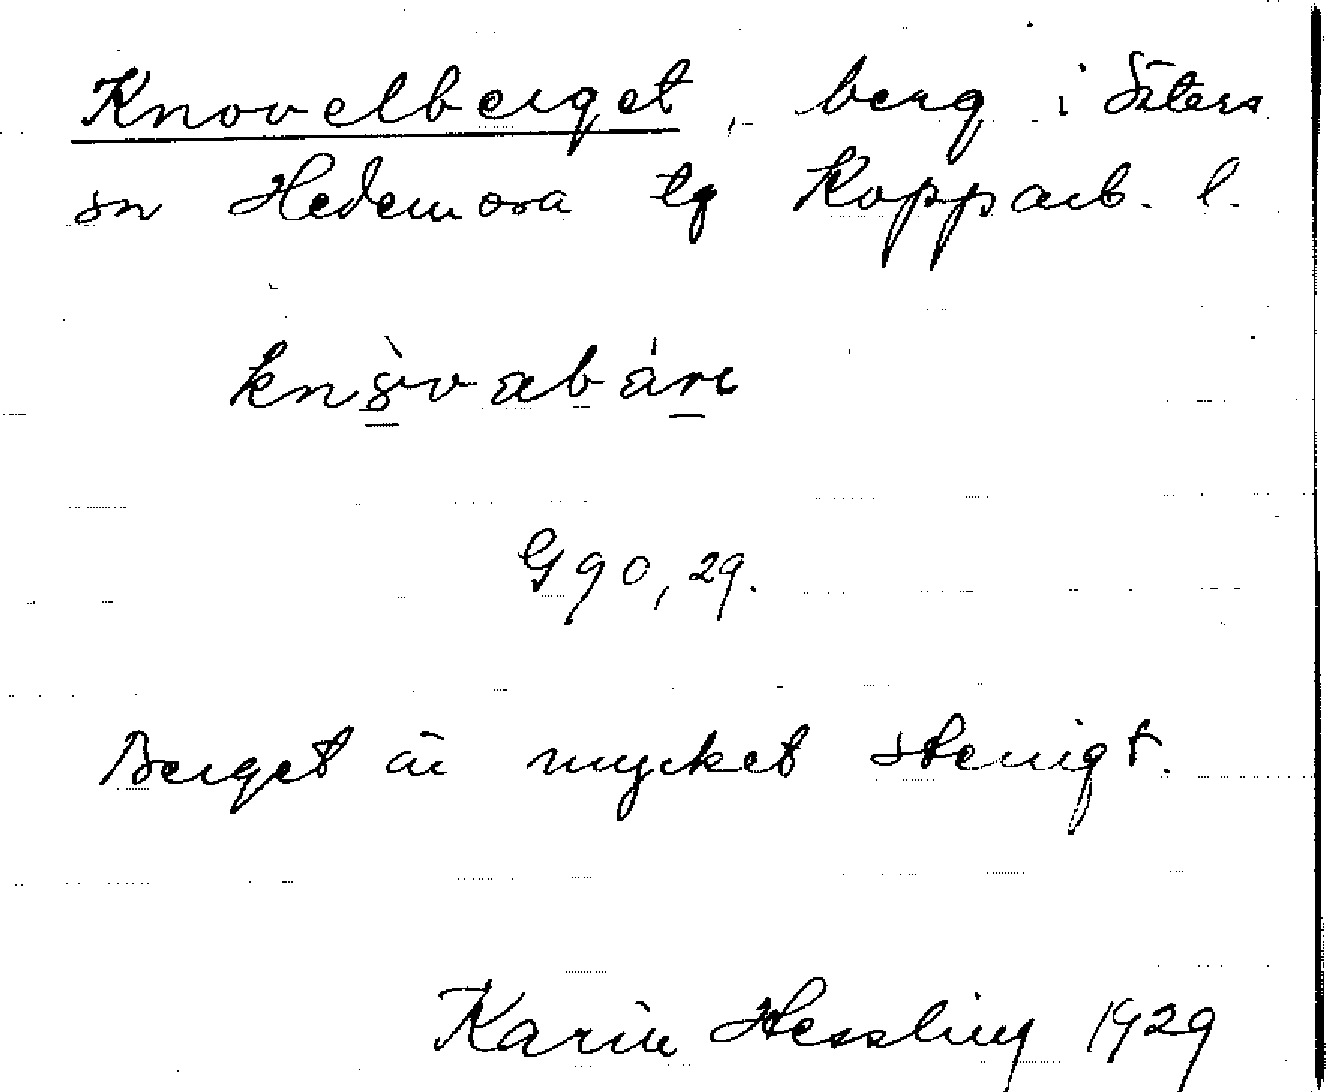 Knovelberget, berg i Säters
sn Hedemora tg Kopparb. l.
G 90, 29.
Berget är mycket stenigt.
Karin Hessling 1929